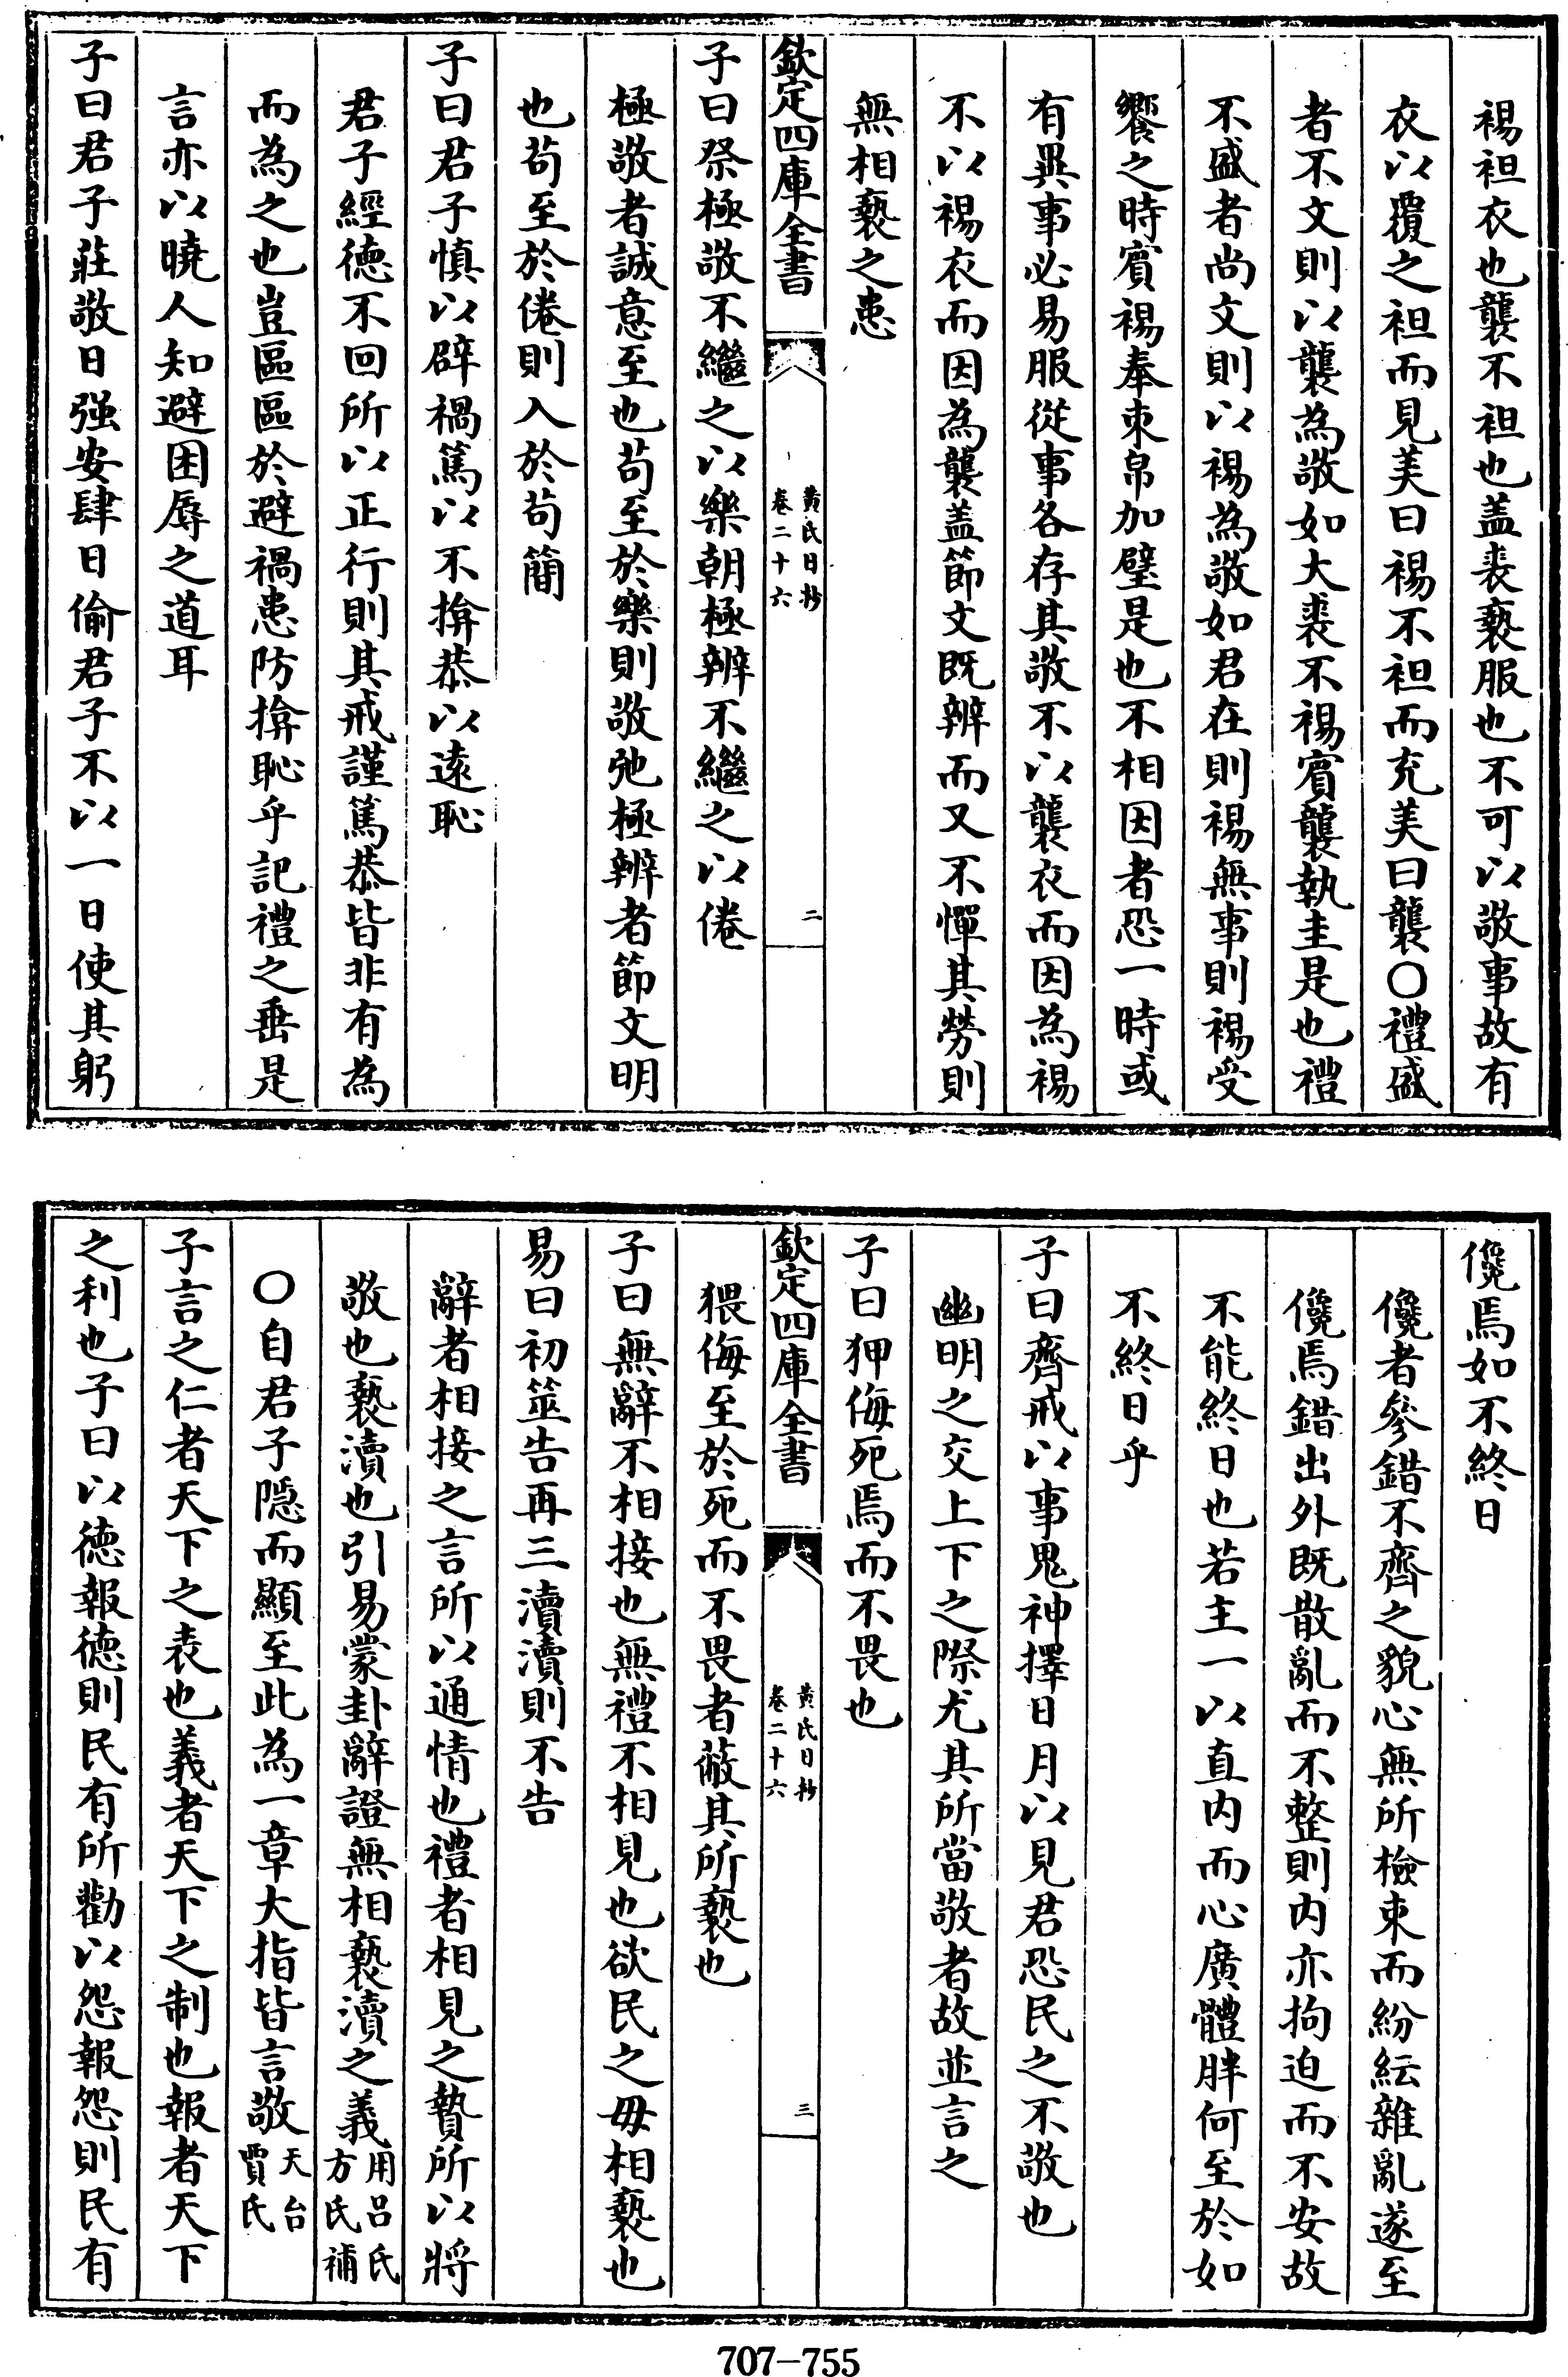 裼袒衣也襲不袒也盖裘䙝服也不可以敬事故有
衣以覆之袒而見美曰裼不袒而充美曰襲○禮盛
者不文則以襲為敬如大裘不裼賓襲執圭是也禮
不盛者尚文則以裼為敬如君在則裼無事則裼受
饗之時賓裼奉束帛加璧是也不相因者恐一時或
有異事必易服從事各存其敬不以襲衣而因為裼
不以裼衣而因為襲盖節文既辨而又不憚其勞則
無相䙝之患
欽定四庫全書
黄氏日抄
卷二十六
二
子曰祭極敬不繼之以樂朝極辨不繼之以倦
極敬者誠意至也茍至於樂則敬弛極辨者節文明
也茍至於倦則入於茍簡
子曰君子慎以辟禍篤以不揜恭以逺恥
君子經德不回所以正行則其戒謹篤恭皆非有為
而為之也豈區區於避禍患防揜恥乎記禮之垂是
言亦以曉人知避困辱之道耳
子曰君子莊敬日强安肆日偷君子不以一日使其躬
儳焉如不終日
儳者參錯不齊之貌心無所檢束而紛紜雜亂遂至
儳焉錯出外既散亂而不整則内亦拘迫而不安故
不能終日也若主一以直内而心廣體胖何至於如
不終日乎
子曰齊戒以事鬼神擇日月以見君恐民之不敬也
幽明之交上下之際尤其所當敬者故並言之
子曰狎侮死焉而不畏也
欽定四庫全書
黄氏日抄
卷二十六
三
猥侮至於死而不畏者蔽其所䙝也
子曰無辭不相接也無禮不相見也欲民之毋相䙝也
易曰初筮告再三瀆瀆則不告
辭者相接之言所以通情也禮者相見之贄所以將
敬也䙝瀆也引易蒙卦辭證無相䙝瀆之義用吕氏
方氏補
○自君子隠而顯至此為一章大指皆言敬天台
賈氏
子言之仁者天下之表也義者天下之制也報者天下
之利也子曰以德報德則民有所勸以怨報怨則民有
707-755